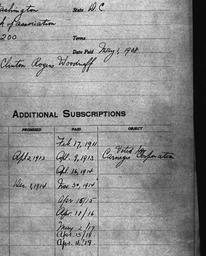 ashington State D.C.
k of association
200 Terms
Date Paid May 1, 908
Clinton Rogers Woodruff
ADDITIONAL SUBSCRIPTIONS
PROMISED PAID OBJECT
Feb 17, 1911
Apl 2 1913 Apl. 9, 1913 Voted by
Carnegie Corporation
Apl. 16, 1914
Dec. 1, 1914 Nov. 30, 1914
Apr 15/15
Apr. 10/16
May 2/17
Apr. 13/18
Apr. 16/19